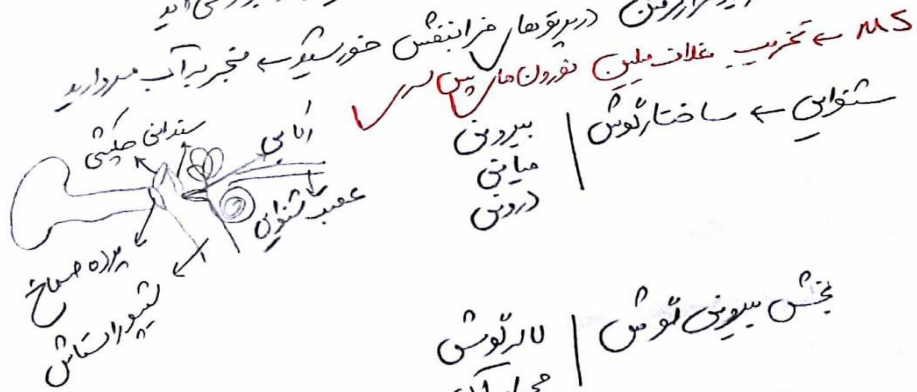 در پرتوهای فرابنفش خورشید ← منجر به آب مروارید
MS ← تخریب غلاف میلین نورون‌های
شنوایی ← ساختار گوش | بیرونی
میانی
درونی
سندانی چکشی
رکابی
عصب شنوایی
پرده صماخ
شیپور استاش
بخش بیرونی گوش | لاله گوش